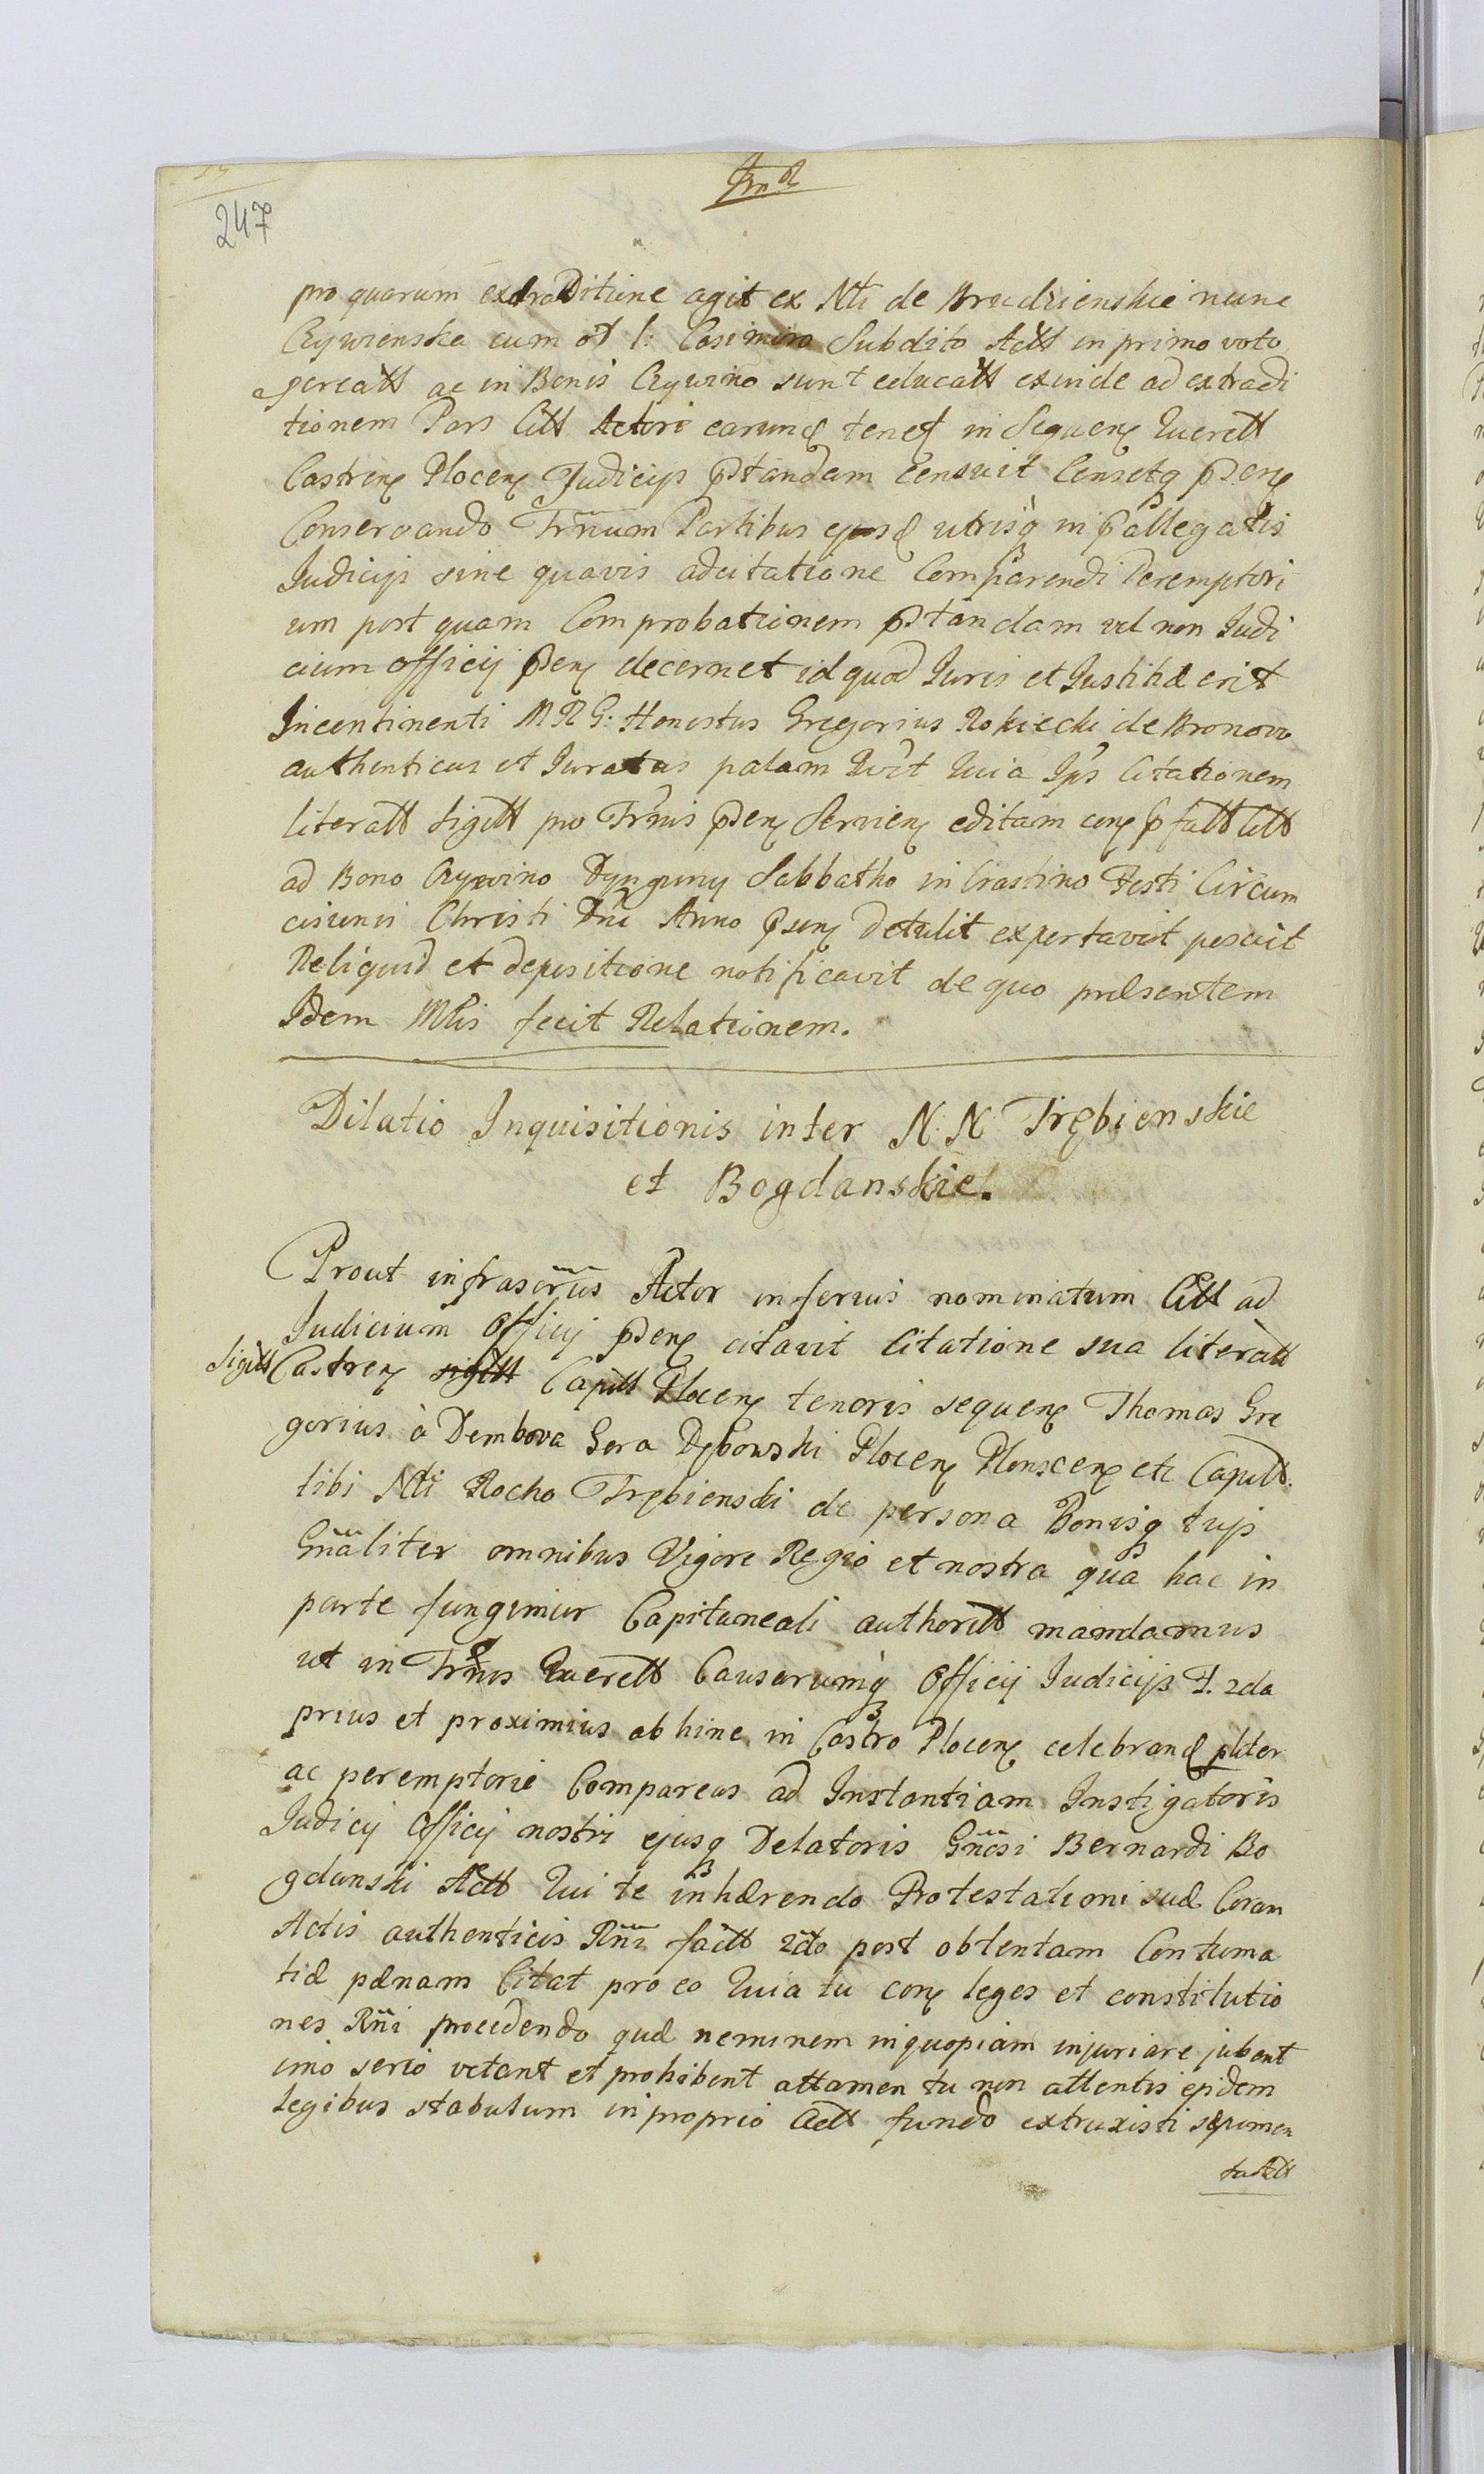 247
pro quarum extraditione agit ex Ntt de Brudzienskie nunc
Czywienska cum ol l: Casimiro Subdito Actt in primo voto
percatt ac in Bonis Czywino sunt educatt exinde ad extradi
tionem Pars Citt Actori earund tenet in Sequenꝫ Querell
Castrenꝫ Plocenꝫ Judicijs pstandam censuit Censetq psenꝫ
Conservando Trñum Partibus ejusd utrisq in pallegatis
Judicijs sine quavis adcitatione Comparendi Peremptori
um post quam Comprobationem pstandam vel non Judi
cium officij psenꝫ decernet id quod Juris et Justitiæ erit
Incontinenti MRG: Honestus Gregorius Rokicki de Bronowo
authenticus et Juratus palam rect Quia Ips Citationem
literatt sigitt pro Trñis psenꝫ Servienꝫ editam conꝫ pfatt Citt
ad Bona Czywino Sabbatho in Crastino Festi Circum
cisionis Christi Dni Anno psenꝫ detulit exportavit posuit
Reliquid et depositione notificavit de quo præsentem
Idem Mlis fecit Relationem.
Dilatio Inquisitionis inter N: N: Trębienskie
et Bogdanskie.
Prout infrascrius Actor inferius nominatum Citt ad
Judicium Officij psenꝫ citavit Citatione sua literatt
Sigitt Castrenꝫ sigitt Capitt Plocenꝫ tenoris sequenꝫ Thomas Gre
gorius à Dembova Gora Dębowski Plocenꝫ Plonscenꝫ etc Capitt.
tibi Ntti Rocho Trębienski de persona Bonisq tujs
Gñaliter omnibus Vigore Regio et nostra qua hac in
parte fungimur Capitaneali authoritt mandamus
ut in Trñis Querell Causarumq Officij Judicijs F. 2da
prius et proximius ab hinc in Castro Plocenꝫ celebrand pliter
ac peremptorie Compareas ad Instantiam Instigatoris
Judicij Officij nostri ejusq Delatoris Gñosi Bernardi Bo
gdanski Actt Qui te inhærendo Protestationi suæ Coram
Actis authenticis Rñi factt 2do post obtentam Contuma
tiæ pænam Citat pro eo Quia tu conꝫ leges et constitutio
nes Rñi procedendo quæ neminem inquopiam injuriare jubent
imo serio vetant et prohibent attamen tu non attentis ejsdem
legibus stabulum in proprio Actt fundo extruxisti sæpimen
ta Actt